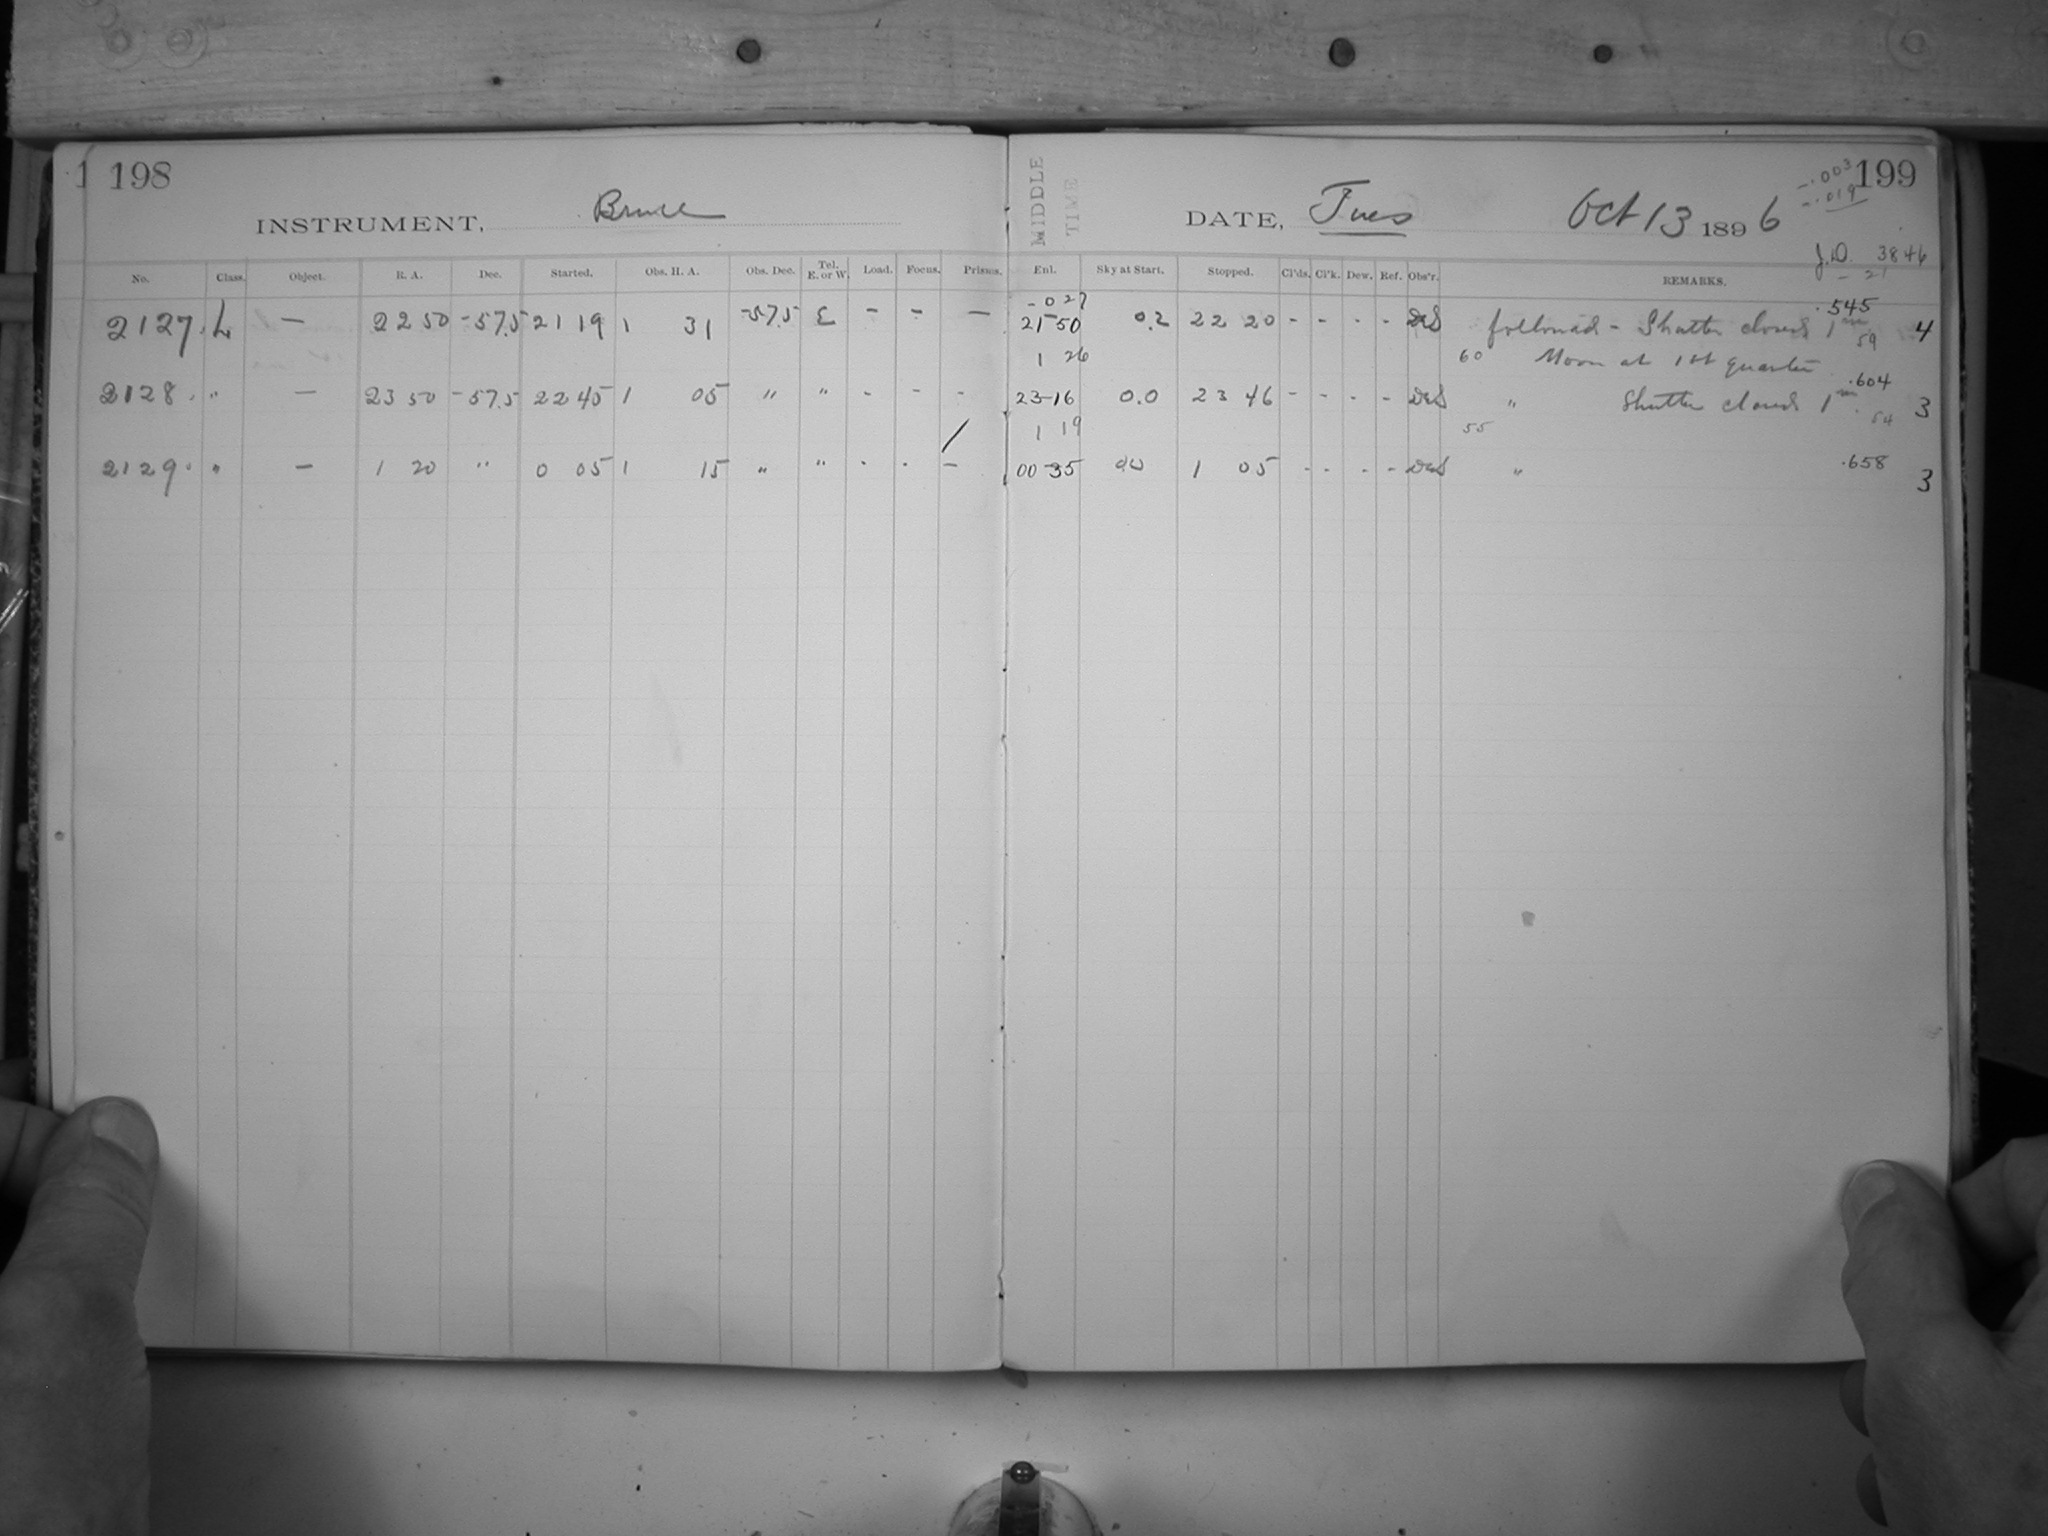 1 198
INSTRUMENT, Bruce
No. Class. Object. R. A. Dec. Started. Obs. H. A. Obs. Dec. Tel. E. or W. Load. Focus. Prisms.
2127. L — 22 50 -57.5 21 19 1 31 -57.5 E - - —
2128. " — 23 50 -57.5 22 45 1 05 " " - - -
2129. " — 1 20 " 0 05 1 15 " " - - -
MIDDLE TIME
DATE, Tues Oct 13 1896
-.003
-.019
199
J.D. 3846
- 21
Enl. Sky at Start. Stopped. Cl'ds. Cl'k. Dew. Ref. Obs'r. REMARKS.
-027
.545
21-50 0.2 22 20 - - - - followed - Shutter closed 1m 4
59
1 26 60 Moon at 1st quarter
.604
23-16 0.0 23 46 - - - - " Shutter closed 1m 3
54
1 19 55
00-35 1 05 - - - - " .658
3